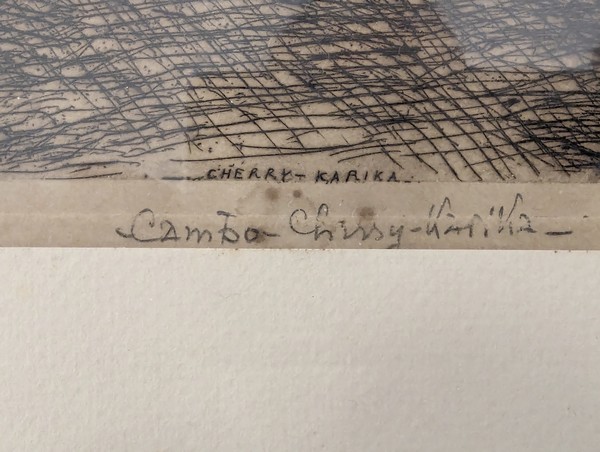 CHERRY-KARIKA
Cambo-Cherry-Karika-